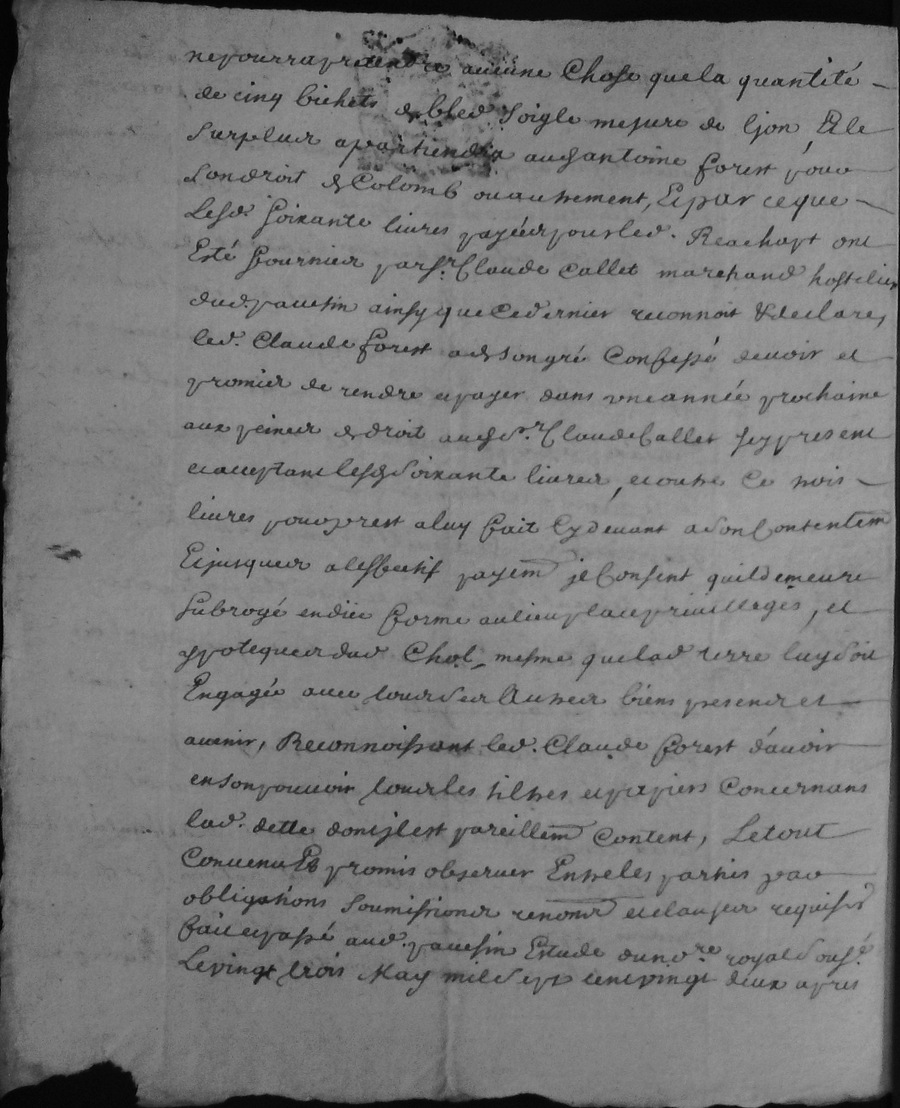 ne pourra pretendre aucune Chose que la quantité
de cinq bichets de bled Soigle mesure de lyon, Et le
Surplus apartiendra aud antoine forest pour
Son droit de Colomb ou autrement, Et par ce que
Lesd. Soixante livres payées pour led. Reachapt ont
Esté fournies par Sr. Claude Callet marchand hostelier
dud. pavesin ainsy que Ce dernier reconnoit & declare,
led. Claude forest a de Son gré Confessé devoir et
promis de rendre et payer dans une année prochaine
aux peines de droit aud Sr. Claude Callet icy present
et acceptant lesd Soixante livres, et outre Ce trois
livres pour prest a luy fait Cy devant a Son Contentem
Et jusques a leffectif payem je Consent quil demeure
Subrogé en düe forme au lieu place privilleges, et
ypoteques dud Chol, mesme que lad terre luy Soit
Engagée avec tous Ses Autres biens presens et
avenir, Reconnoissant led. Claude forest d'avoir
en Son pouvoir tous les tiltres et papiers Concernans
lad. dette dont jl est pareillem Content, Le tout
Convenu Et promis observer Entre les parties par
obligations Soumissions renon et clauses requises
fait et passé aud. pavesin Etude du no.re royal Sousé.
Le vingt trois May mil Sept cent vingt deux apres